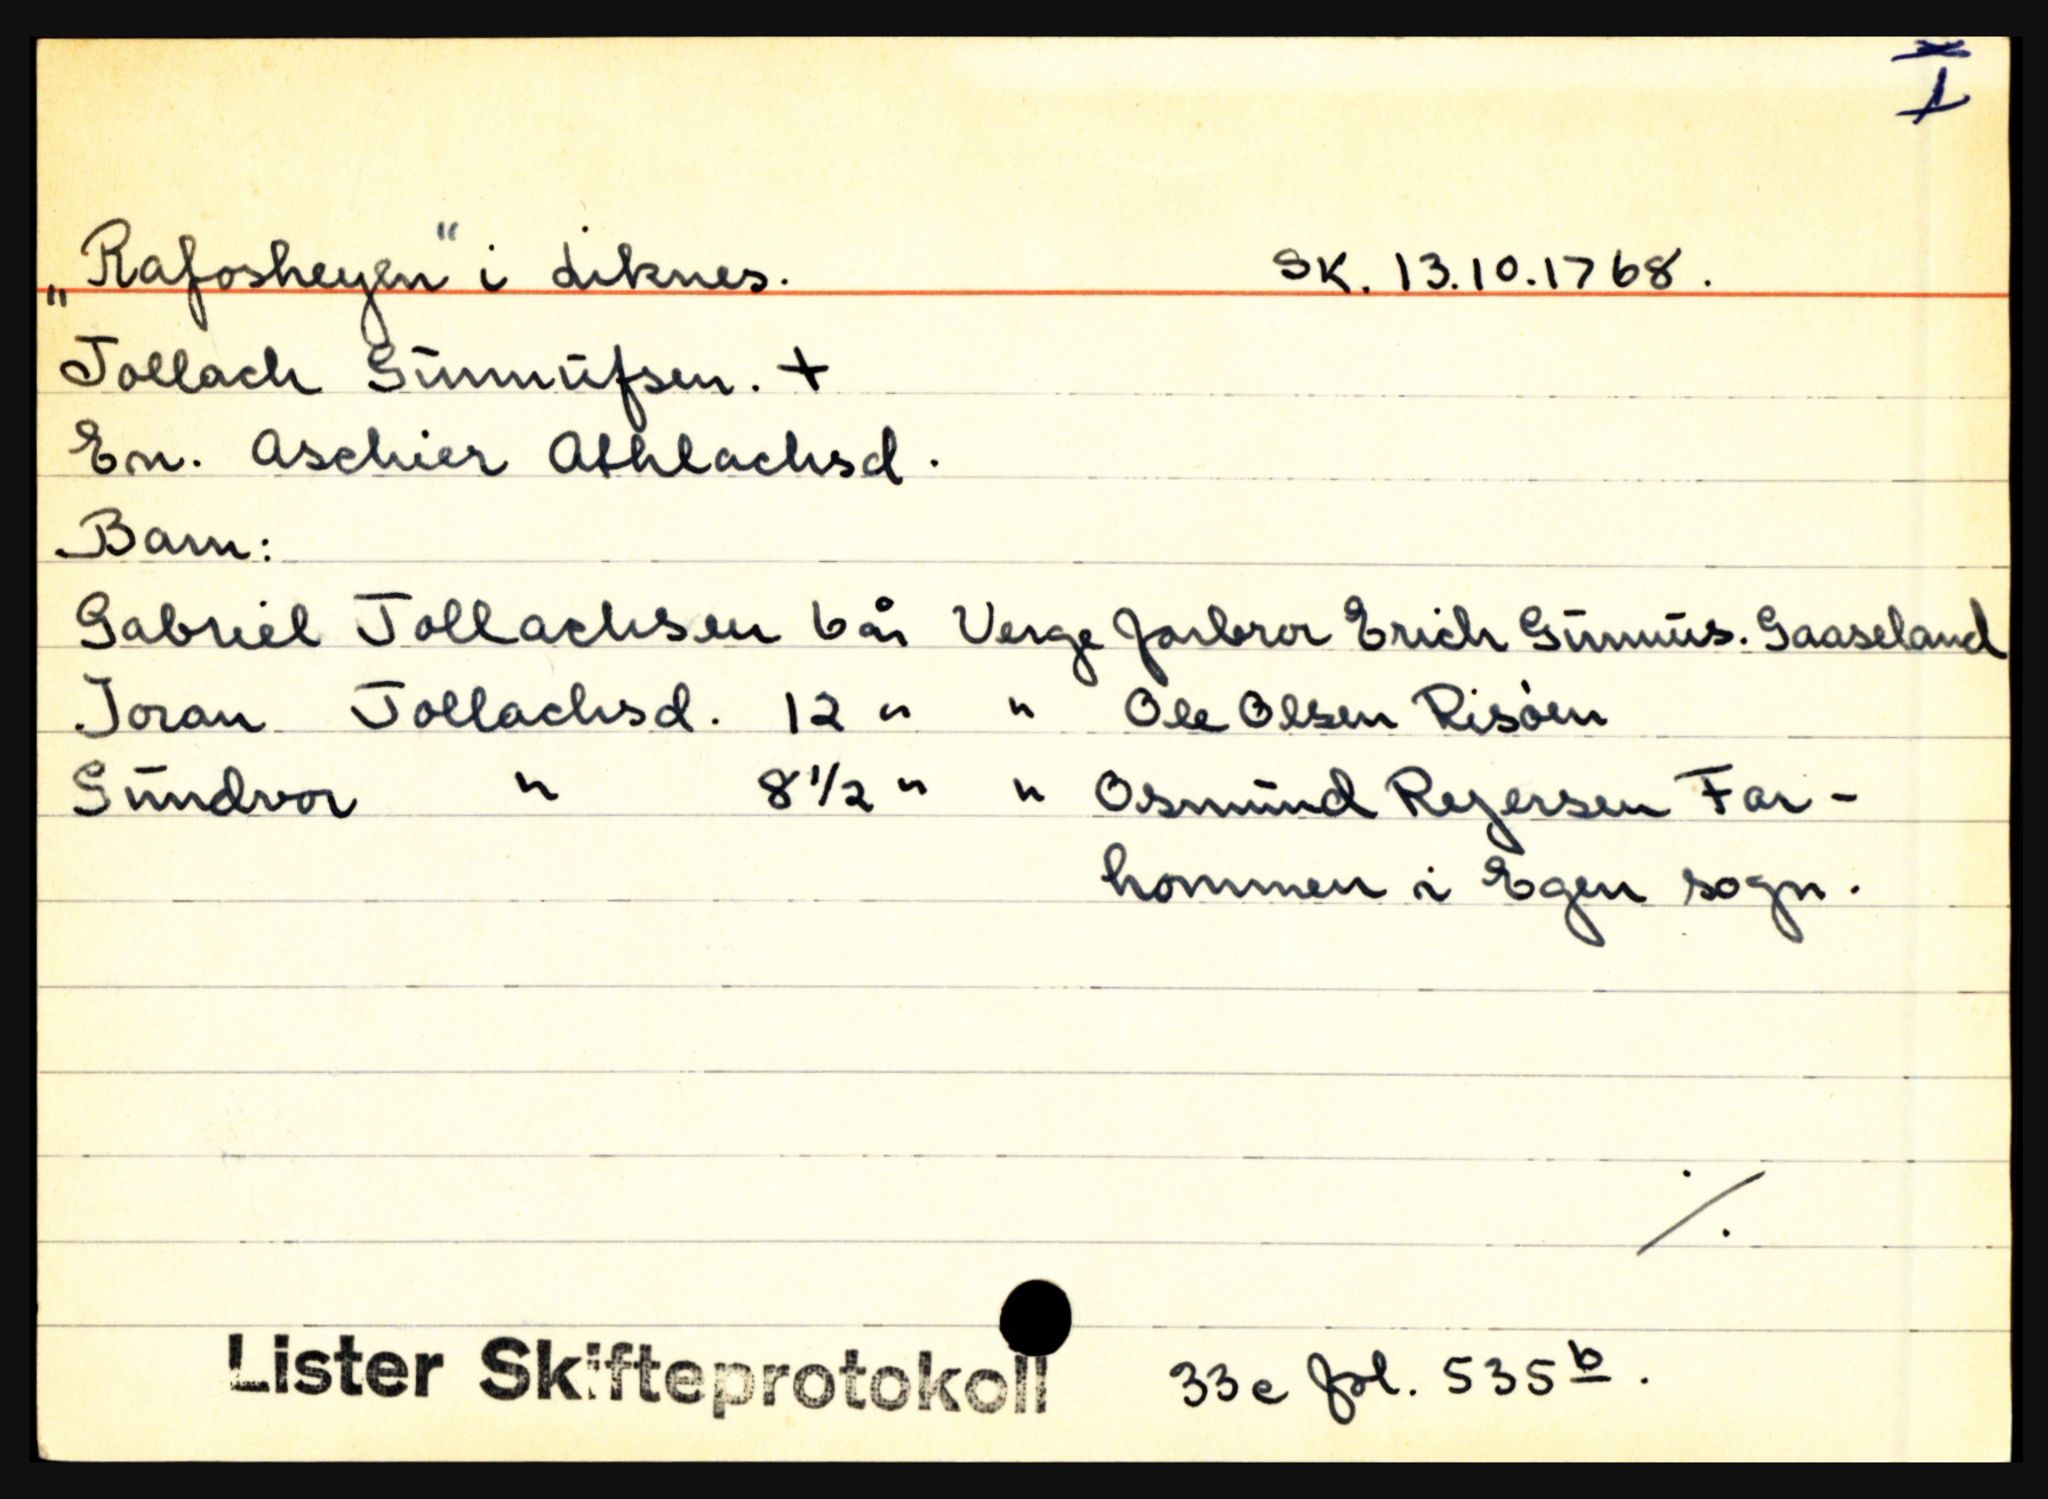 I
„Rafosheyen“ i Liknes. SK. 13.10.1768.
Tollach Gūnnūfsen. +
En. Aschier Athlachsd.
Barn:
Gabriel Tollachsen 6 år Verge farbror Erich Gūnnūs. Gaaseland
Joran Tollachsd. 12 " " Ole Olsen Risöen
Gūndvor " 8 1/2 " " Osmūnd Reyersen Far-
hommen i Egen sogn.
./.
Lister Skifteprotokoll 33c fol. 535 b.